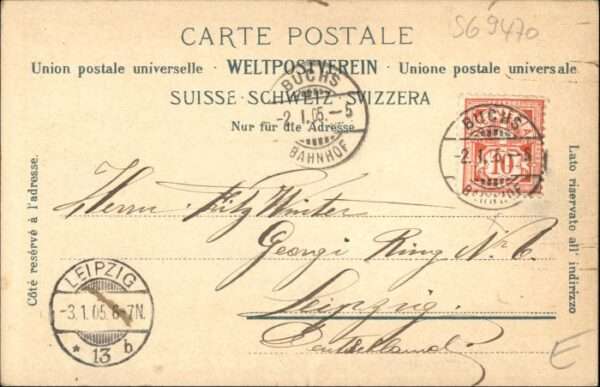 CARTE POSTALE
SG 9470
Union postale universelle · WELTPOSTVEREIN · Unione postale universale
SUISSE · SCHWEIZ · SVIZZERA
Nur für die Adresse
BUCHS
-2.I.05.-5
BAHNHOF
BUCHS
-2.I.
10
Côté resérvé à l'adresse.
Lato riservato all' indirizzo
Herrn Fritz Winter
Georgi Ring Nº 6.
Leipzig.
Deutschland
LEIPZIG
-3.1.05.6-7N.
* 13 b
E